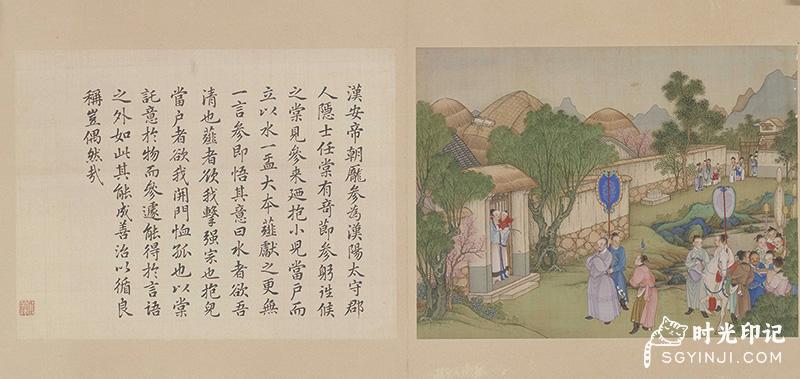 漢安帝朝龐參為漢陽太守郡
人隱士任棠有奇節參躬徃候
之棠見參来廼抱小児當戶而
立以水一盂大本薤獻之更無
一言參即悟其意曰水者欲吾
清也薤者欲我擊强宗也抱兒
當户者欲我開門恤孤也以棠
託意於物而參遽能得於言語
之外如此其能成善治以循良
稱豈偶然哉
时光印记
SGYINJI.COM